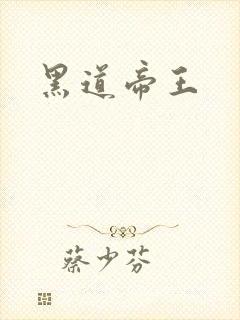 黑道帝王
蔡少芬